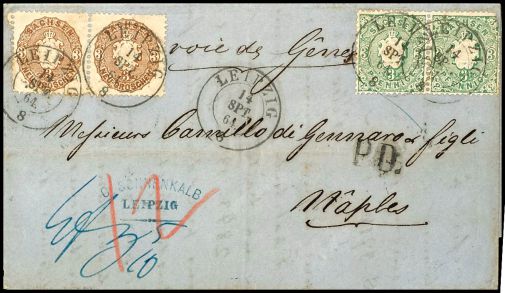 SACHSEN
SACHSEN
LEIPZIG
14
SPT
64
8
LEIPZIG
14
SPT
8
voie de Gênes
LEIPZIG
14
SPT
8
LEIPZIG
14
SPT
8
LEIPZIG
14
SPT
64
8
Messieurs Camillo di Gennaro & figli
P.D.
Naples
SONNENKALB
LEIPZIG